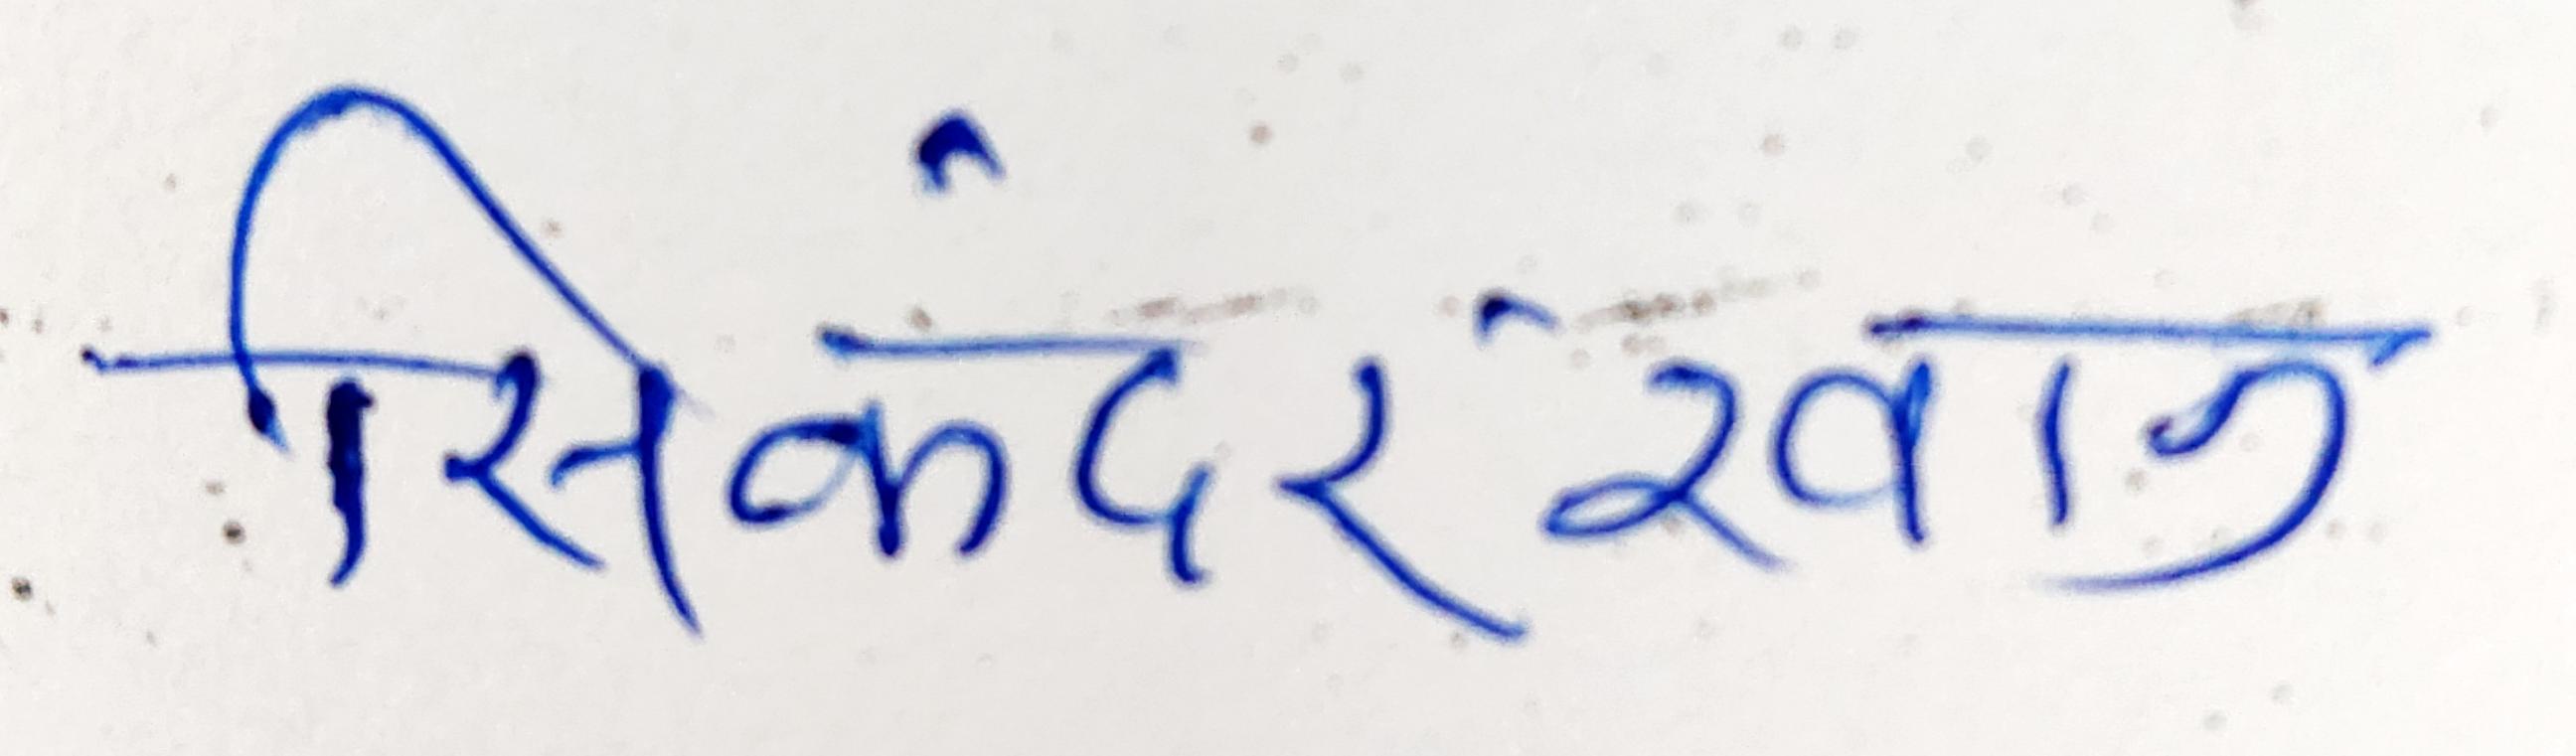 सिकंदर खान